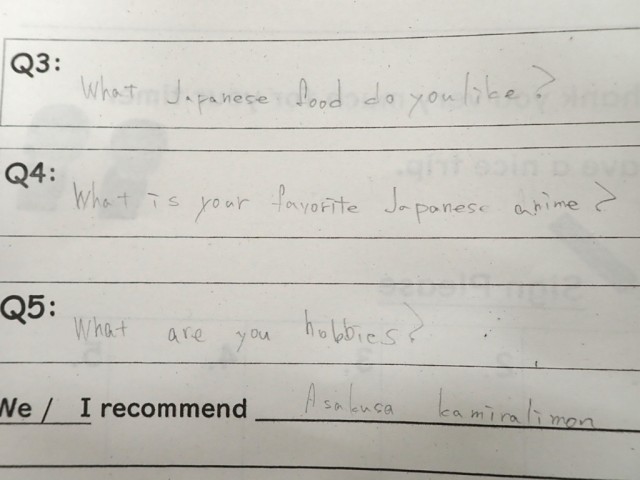 Q3: What Japanese food do you like?
Q4: What is your favorite Japanese anime?
Q5: What are you hobbies?
We / I recommend Asakusa kamiralimon